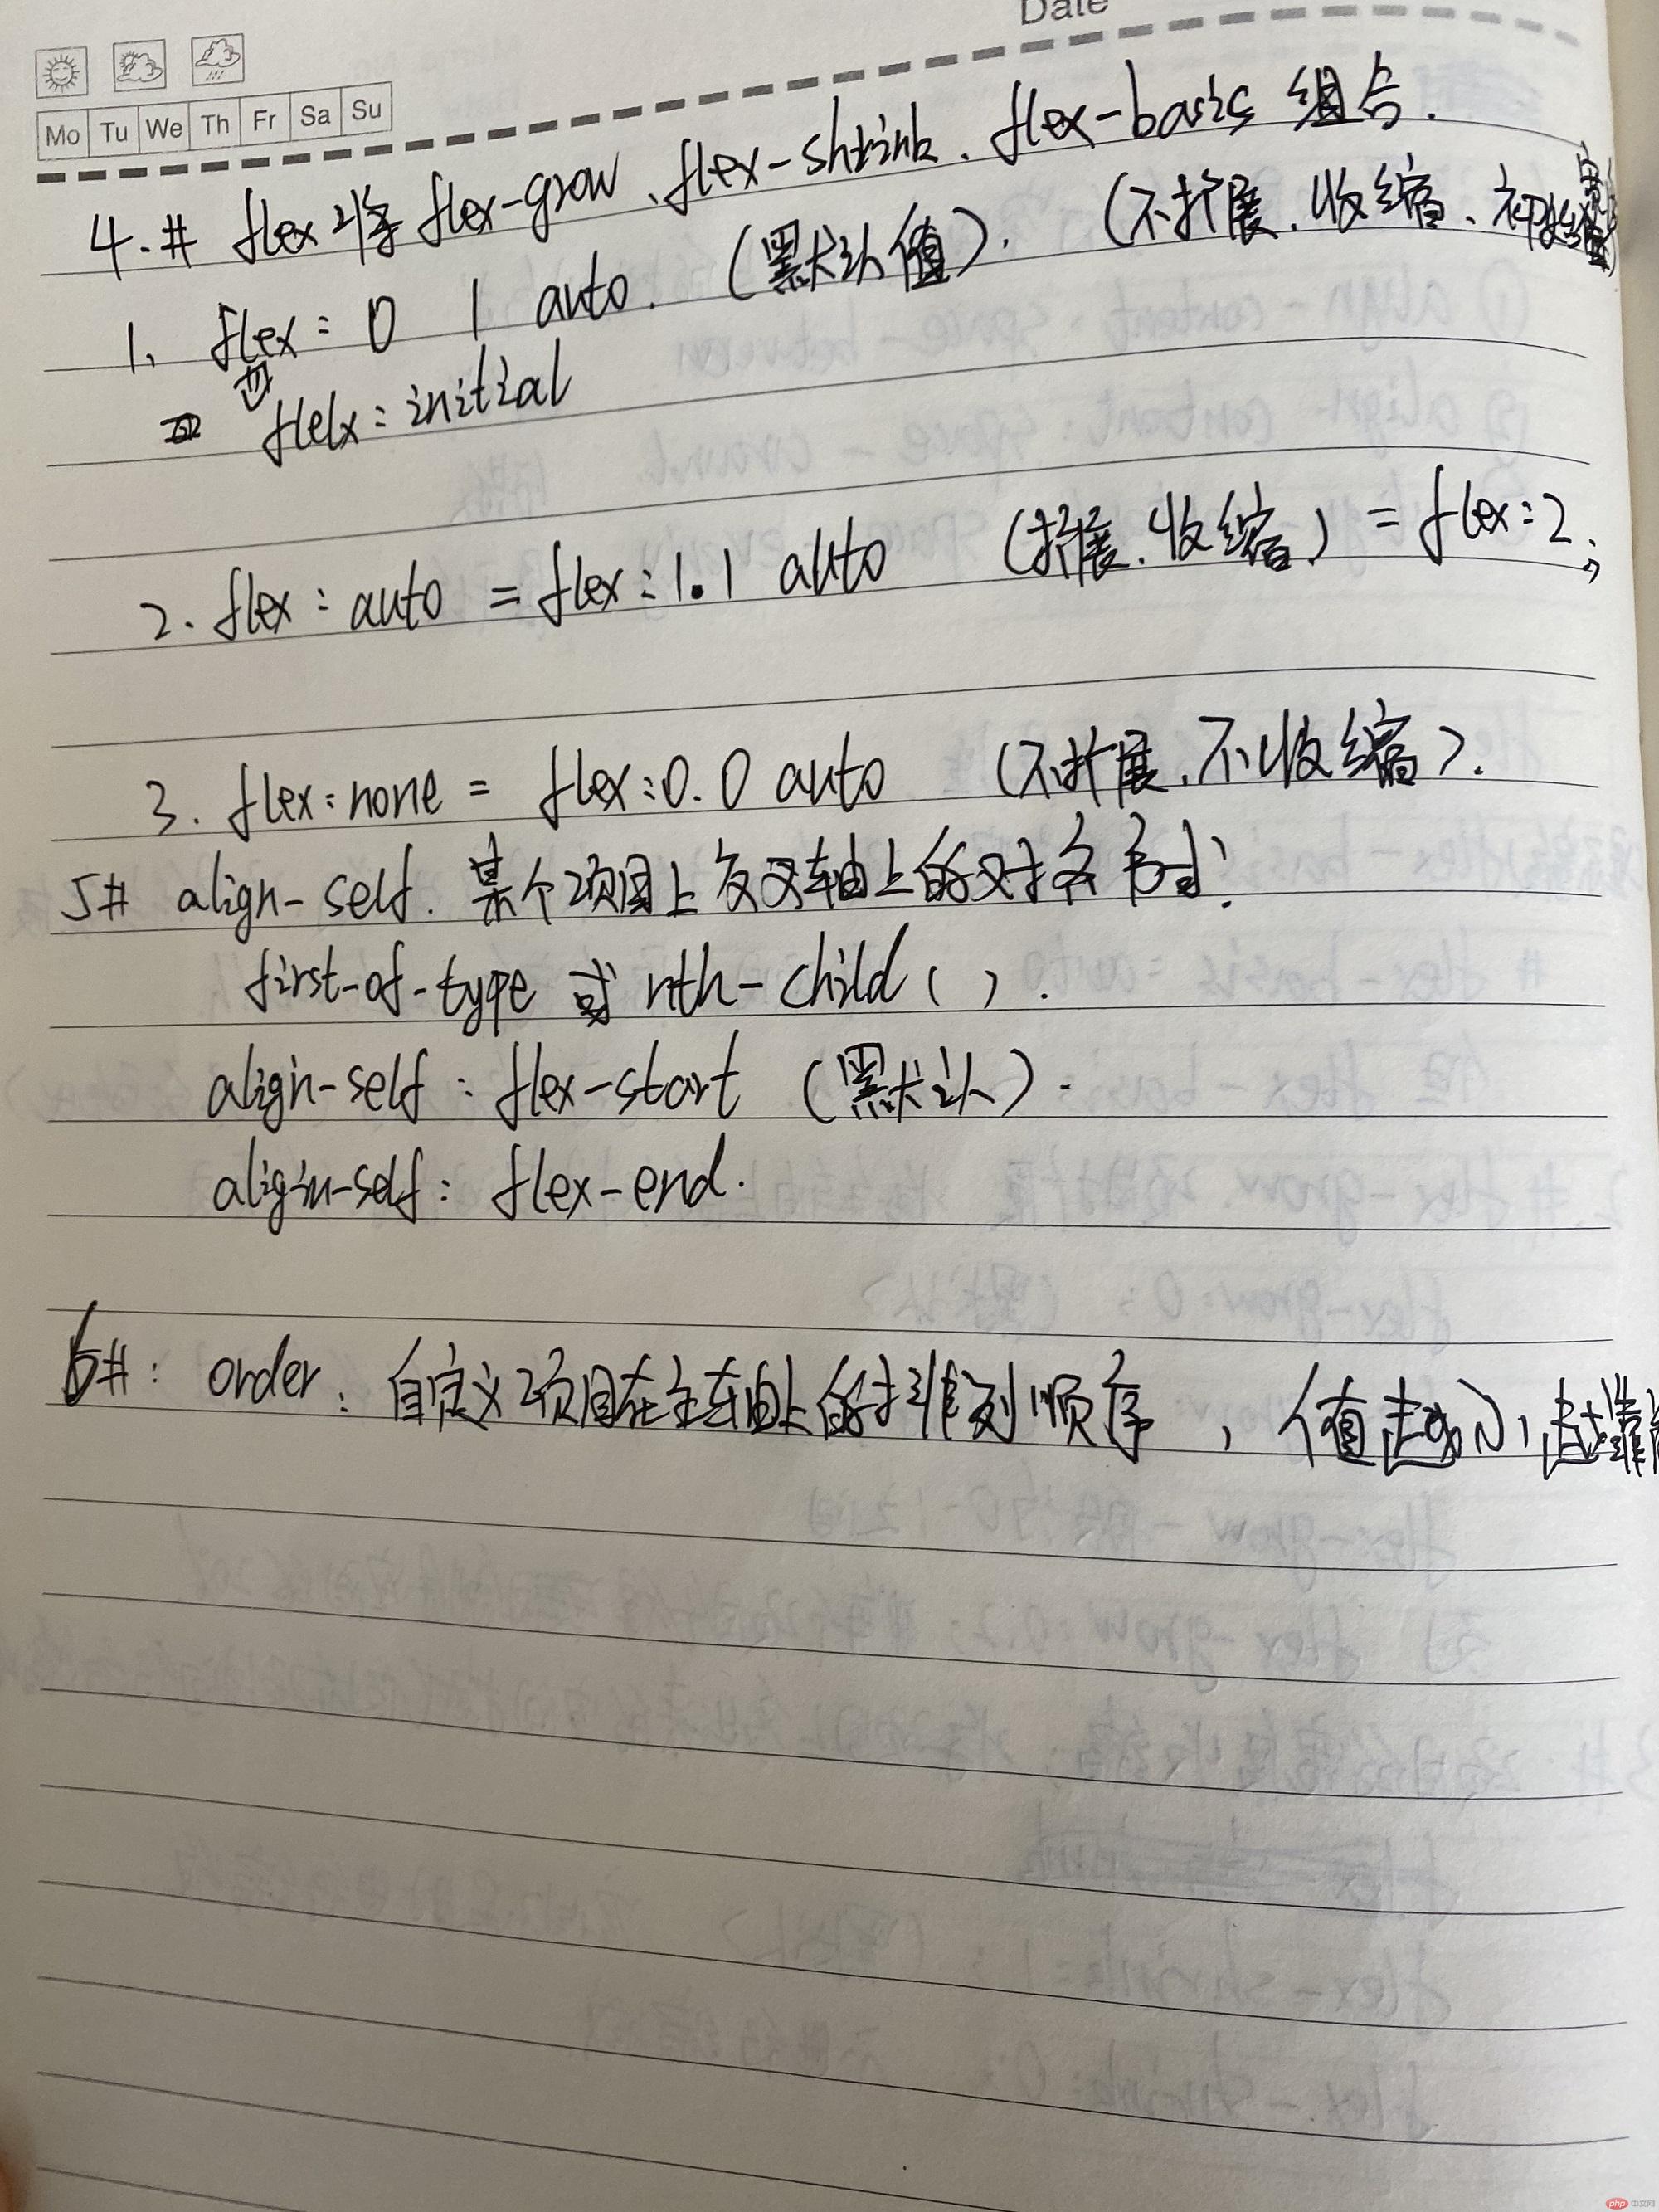 Date
Mo Tu We Th Fr Sa Su
4.# flex 将 flex-grow、flex-shrink、flex-basis 组合.
1. flex: 0 1 auto. (默认值). (不扩展、收缩、初始
flelx: initial
2. flex: auto = flex: 1.1 auto (扩展、收缩) = flex: 2;
3. flex: none = flex: 0.0 auto (不扩展、不收缩).
5# align-self. 某个项目上交叉轴上的对齐方式:
first-of-type 或 nth-child( ).
align-self: flex-start (默认).
align-self: flex-end.
6#: order: 自定义项目在主轴上的排列顺序, 值越小, 越靠
php 中文网